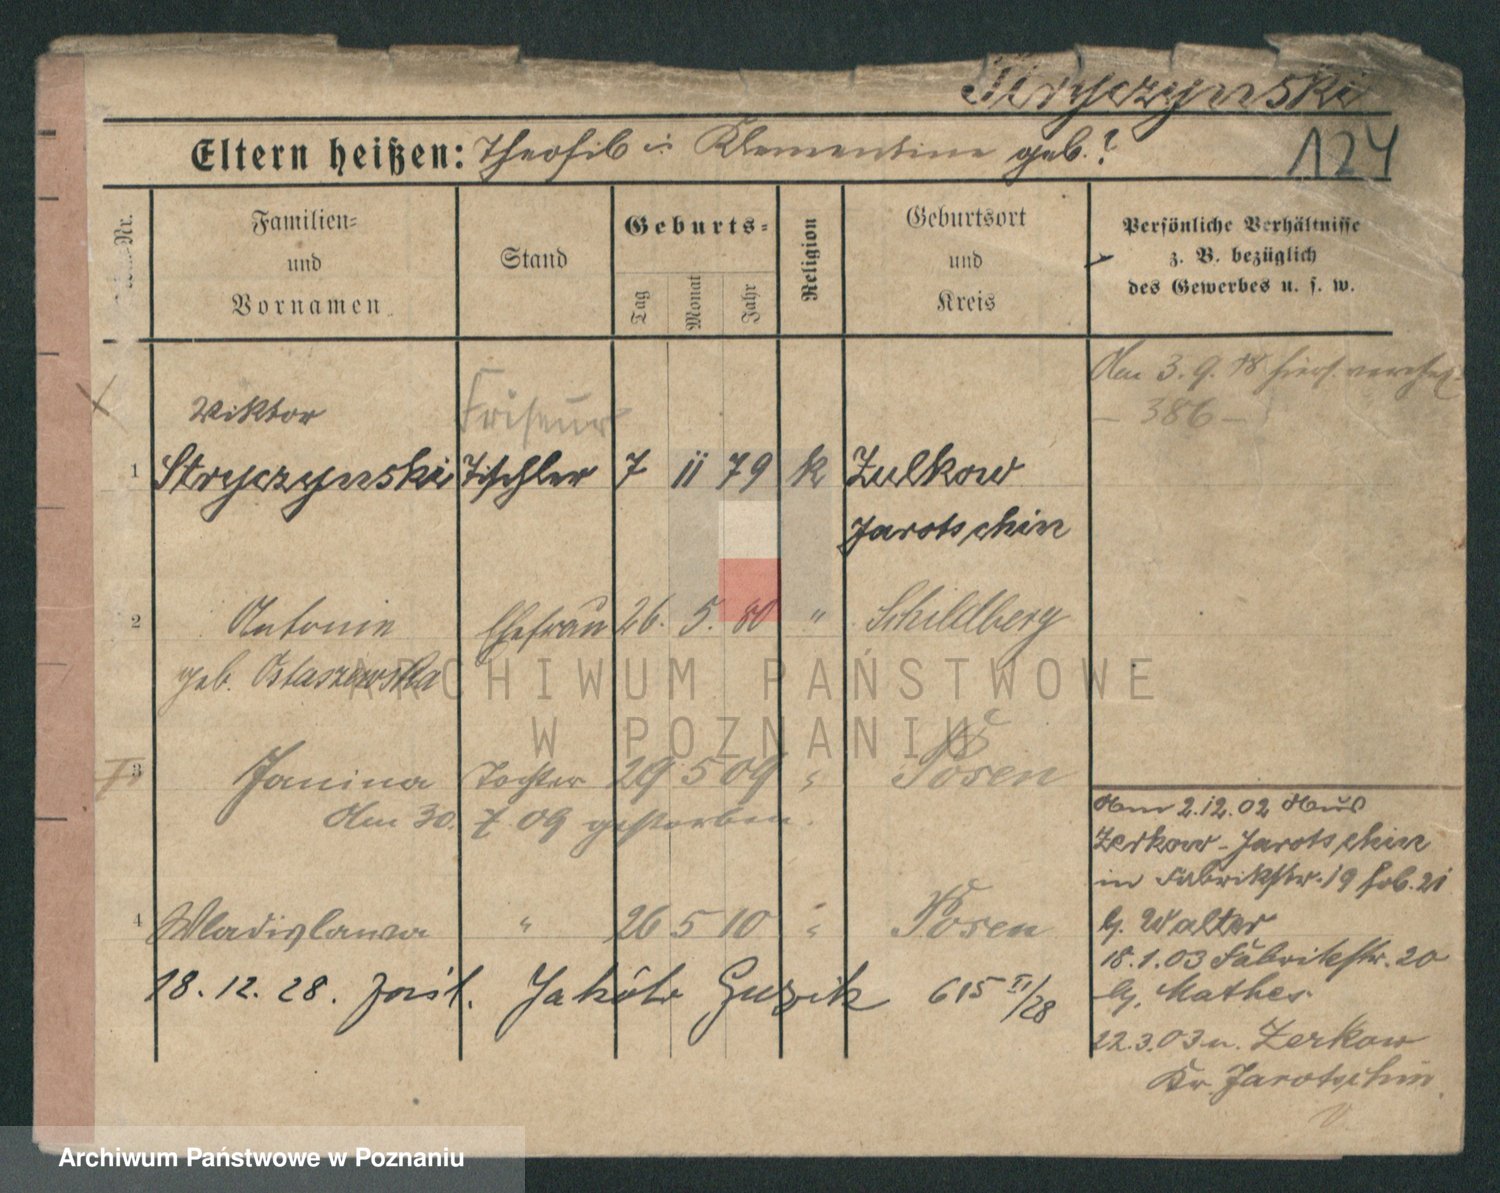 Stryczynski
Eltern heißen: Theofil u. Klementine geb. ?
124
Nr.
Familien-
und
Vornamen
Stand
Geburts-
Tag
Monat
Jahr
Religion
Geburtsort
und
Kreis
Persönliche Verhältnisse
z. B. bezüglich
des Gewerbes u. s. w.
Am 3.9.18
- 386 -
Viktor
Friseur
1 Stryczynski Tischler 7 11 79 k Zulkow
Jarotschin
2 Antonie Ehefrau 26. 5. 80 " Schildberg
geb. Ostaszewska
3 Janina Tochter 29 5 09 " Posen
Am 30. 7 09 gestorben.
4 Wladislawa " 26 5 10 " Posen
18. 12. 28. Jakób Guzik 615 II/28
Am 2.12.02 Aus
Zerkow-Jarotschin
in Fabrikstr. 19
b. Walter
18.1.03 Fabrikstr. 20
b. Mathes
22.3.03 n. Zerkow
Kr. Jarotschin
ARCHIWUM PAŃSTWOWE
W POZNANIU
Archiwum Państwowe w Poznaniu